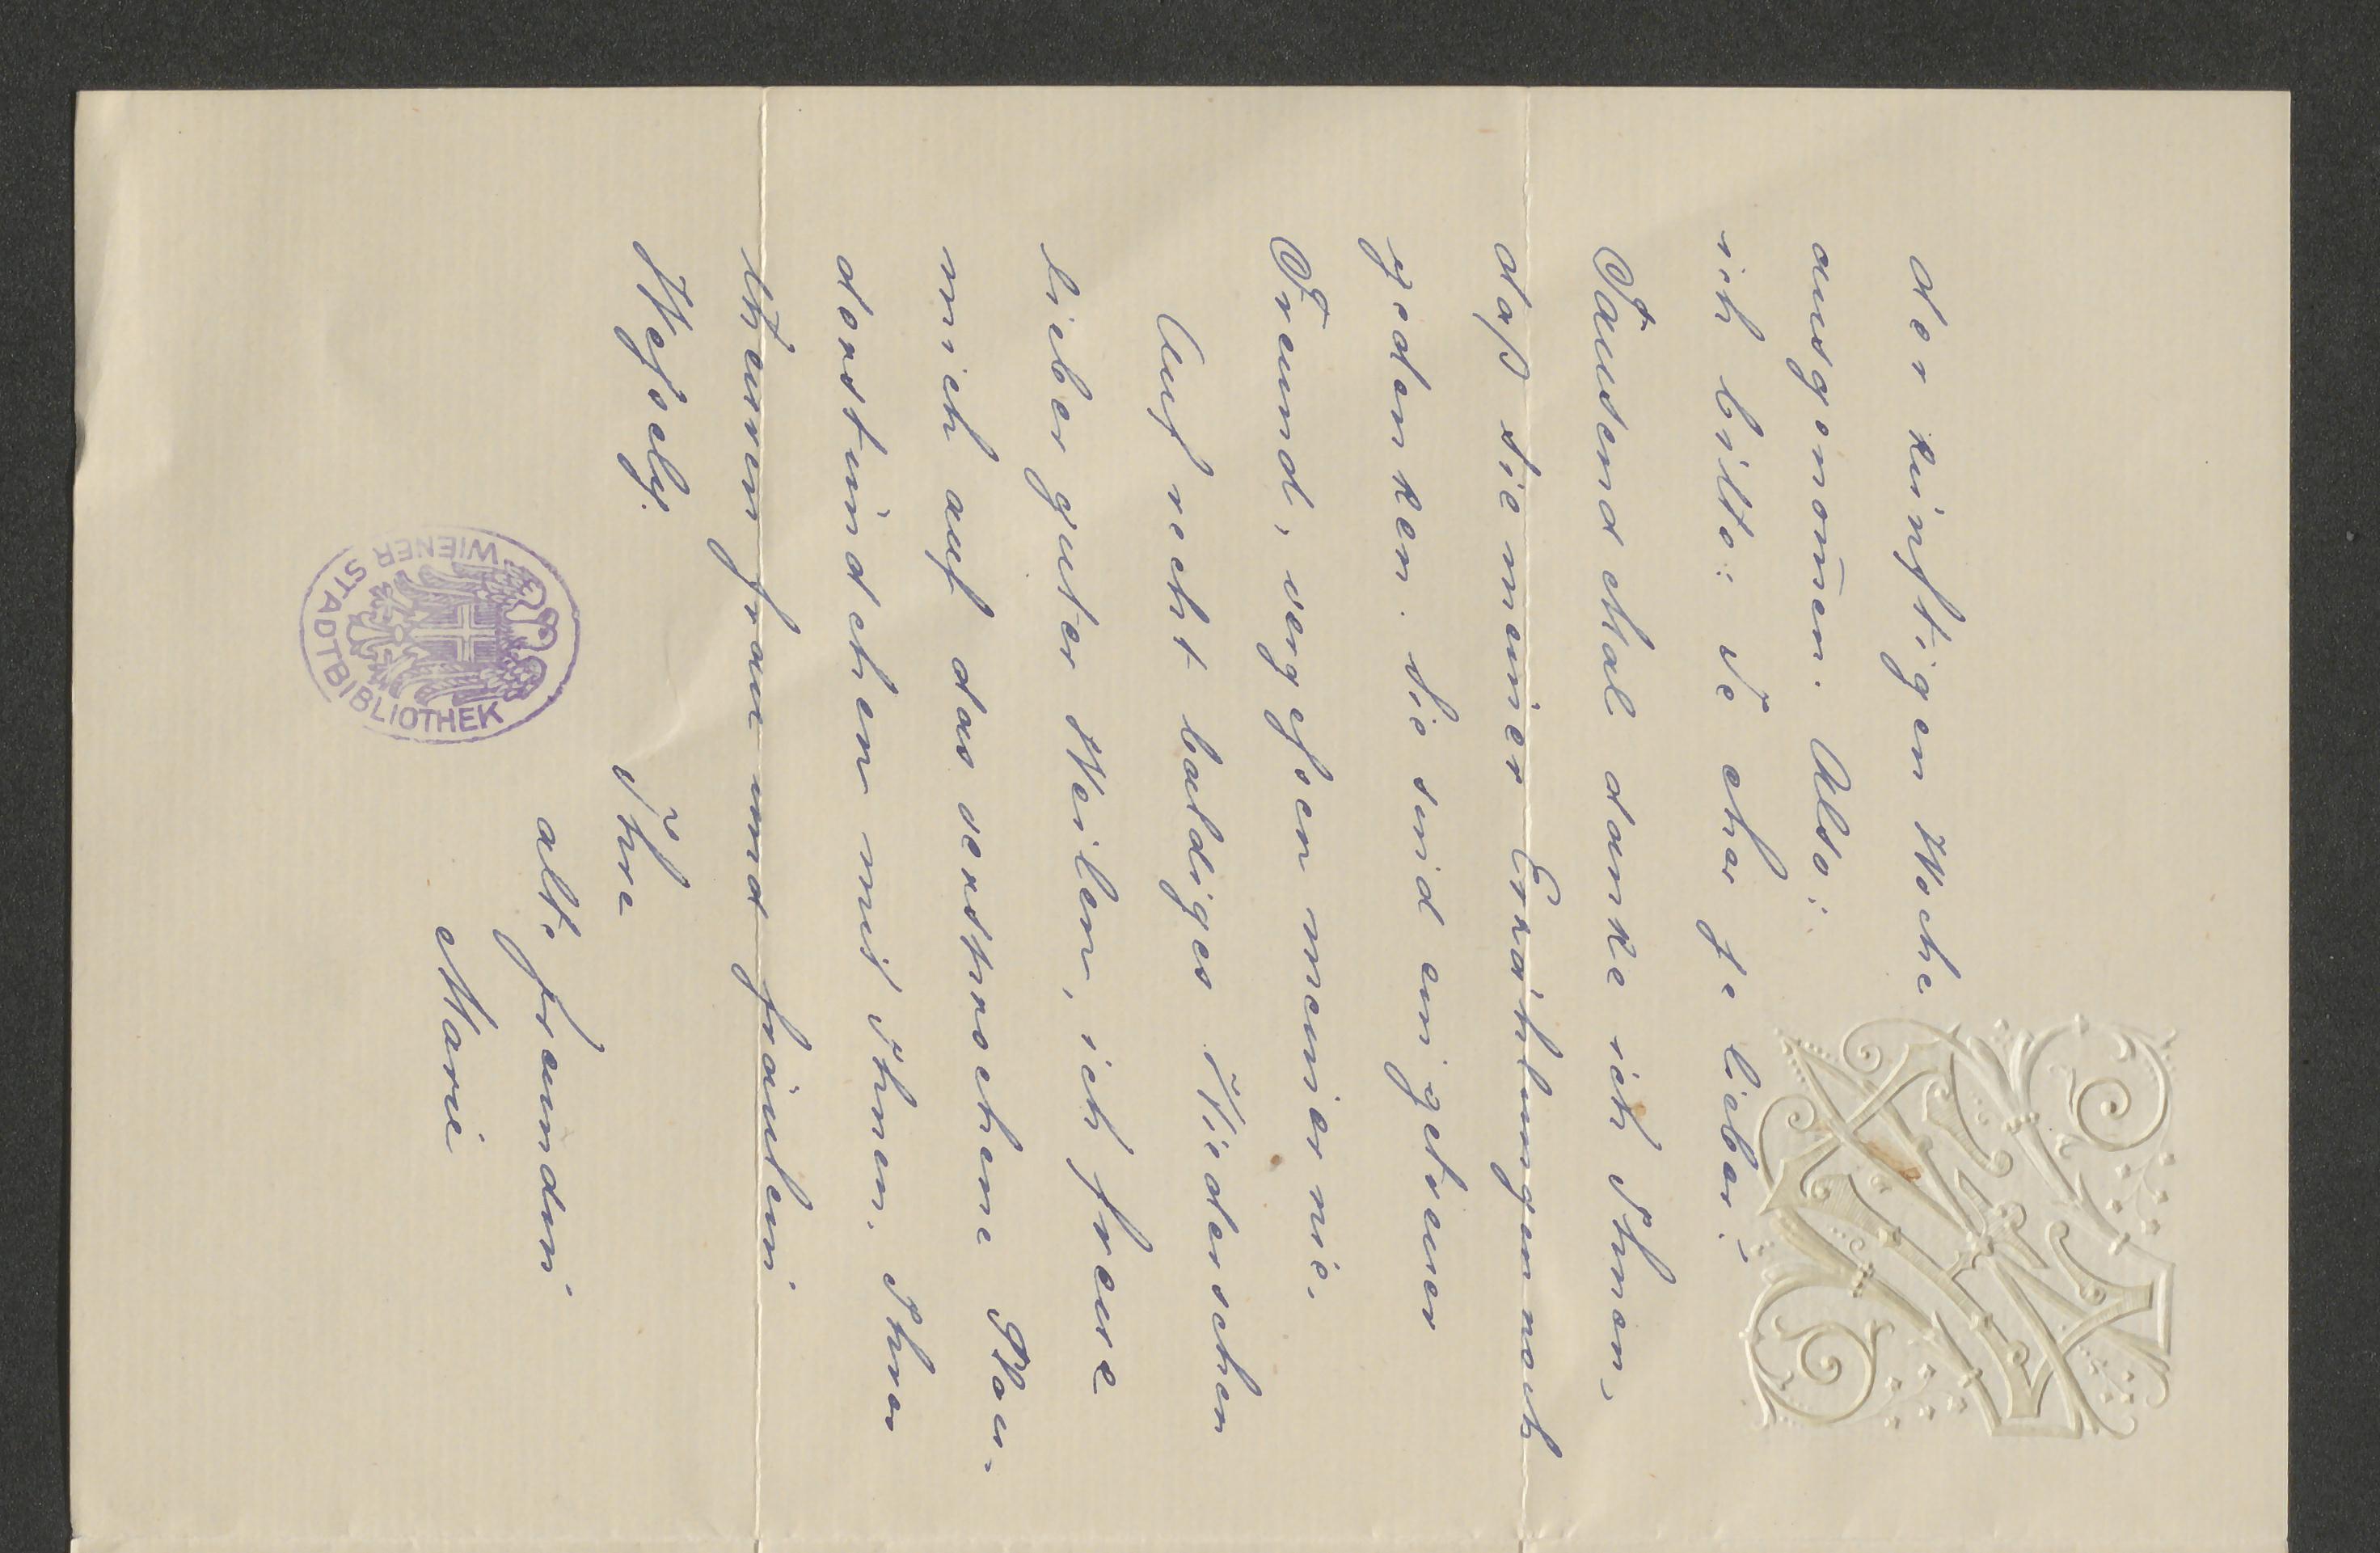 der künftigen Woche
ausgenom̄en. Also:
ich bitte: Je eher je lieber! –
Tausend Mal danke ich Ihnen,
daß Sie meiner Erzählungen noch
gedenken. Sie sind ein getreuer
Freund, vergeßen meiner nie.
Auf recht baldiges Wiedersehen
lieber guter Weilen, ich freue
mich auf das versprochene Plau-
derstündchen mit Ihnen. Ihrer
theuren Frau und Fräulein
Ihre
alte Freundin
Marie
WIENER STADTBIBLIOTHEK